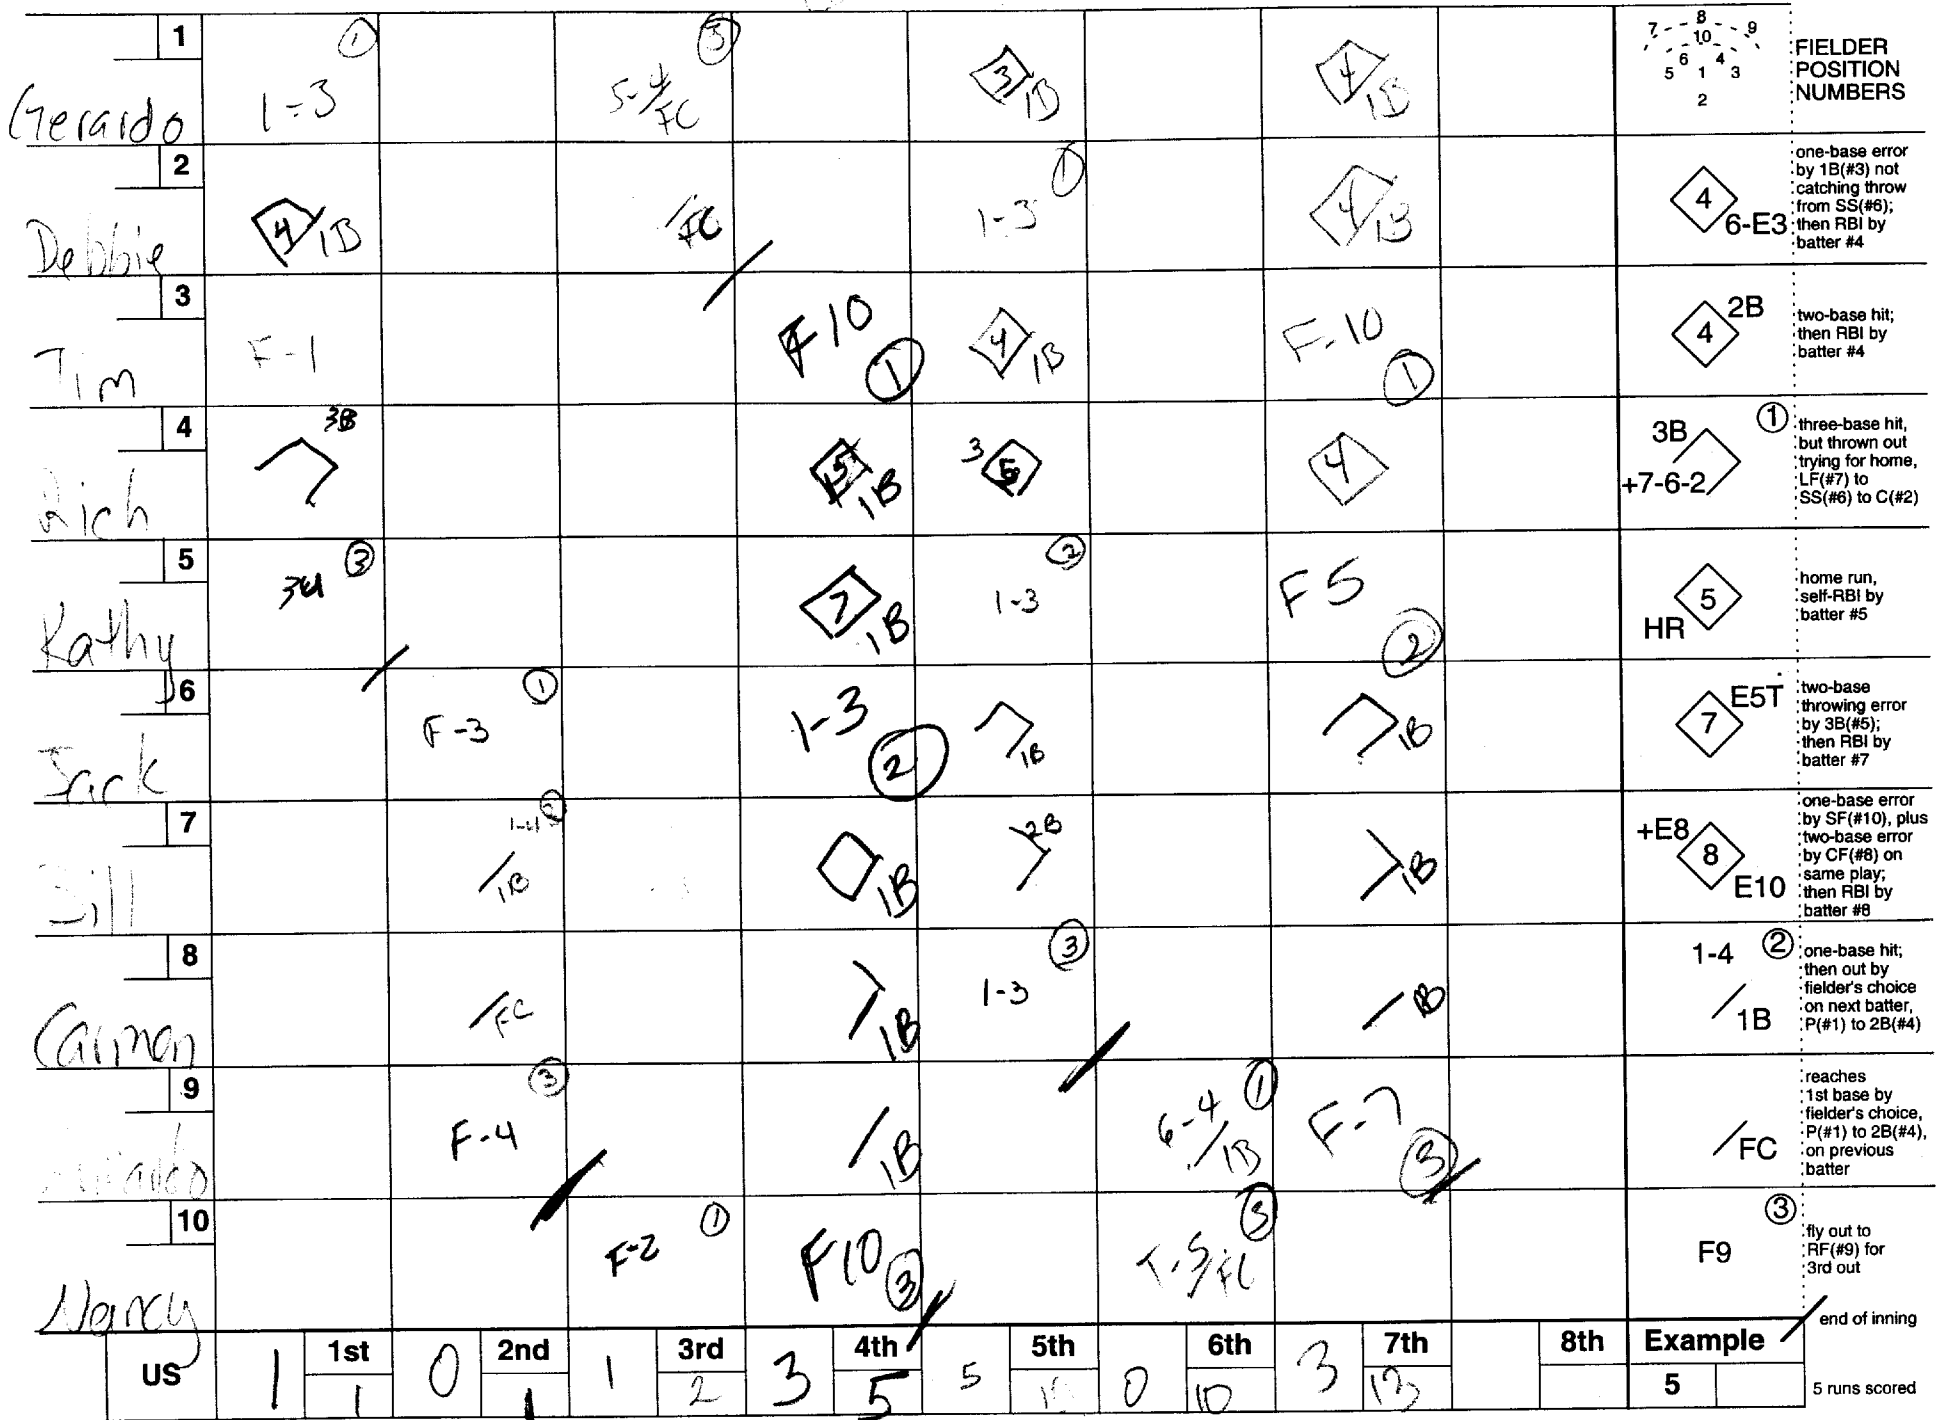 1 ① ③
Gerardo 1-3 5-4/FC 3/1B 4/1B
7 8 9
10
5 6 4 3
1
2
FIELDER
POSITION
NUMBERS
2 ①
Debbie 4/1B /FC 1-3 4/1B
4 6-E3
one-base error
by 1B(#3) not
catching throw
from SS(#6);
then RBI by
batter #4
3
Tim F-1 F10 ① 4 1B F-10 ①
4 2B
two-base hit;
then RBI by
batter #4
4
Rich 3B 5 1B 3 5 4
3B ①
+7-6-2
three-base hit,
but thrown out
trying for home,
LF(#7) to
SS(#6) to C(#2)
5 ③ ②
Kathy 7 1B 1-3 F5 ②
5
HR
home run,
self-RBI by
batter #5
6 ①
Jack F-3 1-3 ② 1B 1B
7 E5T
two-base
throwing error
by 3B(#5);
then RBI by
batter #7
7
Bill 1-4 ② 1B 1B 2B 1B
+E8 8
E10
one-base error
by SF(#10), plus
two-base error
by CF(#8) on
same play;
then RBI by
batter #8
8 ③
Carmen /FC 1B 1-3 1B
1-4 ②
/1B
one-base hit;
then out by
fielder's choice
on next batter,
P(#1) to 2B(#4)
9 ③ ①
F-4 /1B 6-4/1B F-7 ③
/FC
reaches
1st base by
fielder's choice,
P(#1) to 2B(#4),
on previous
batter
10 ① ③
Nancy F-2 F10 ③ FC
F9 ③
fly out to
RF(#9) for
3rd out
end of inning
US 1 1st 0 2nd 1 3rd 3 4th 5 5th 0 6th 3 7th 8th Example
1 1 2 5 10 10 13 5
5 runs scored